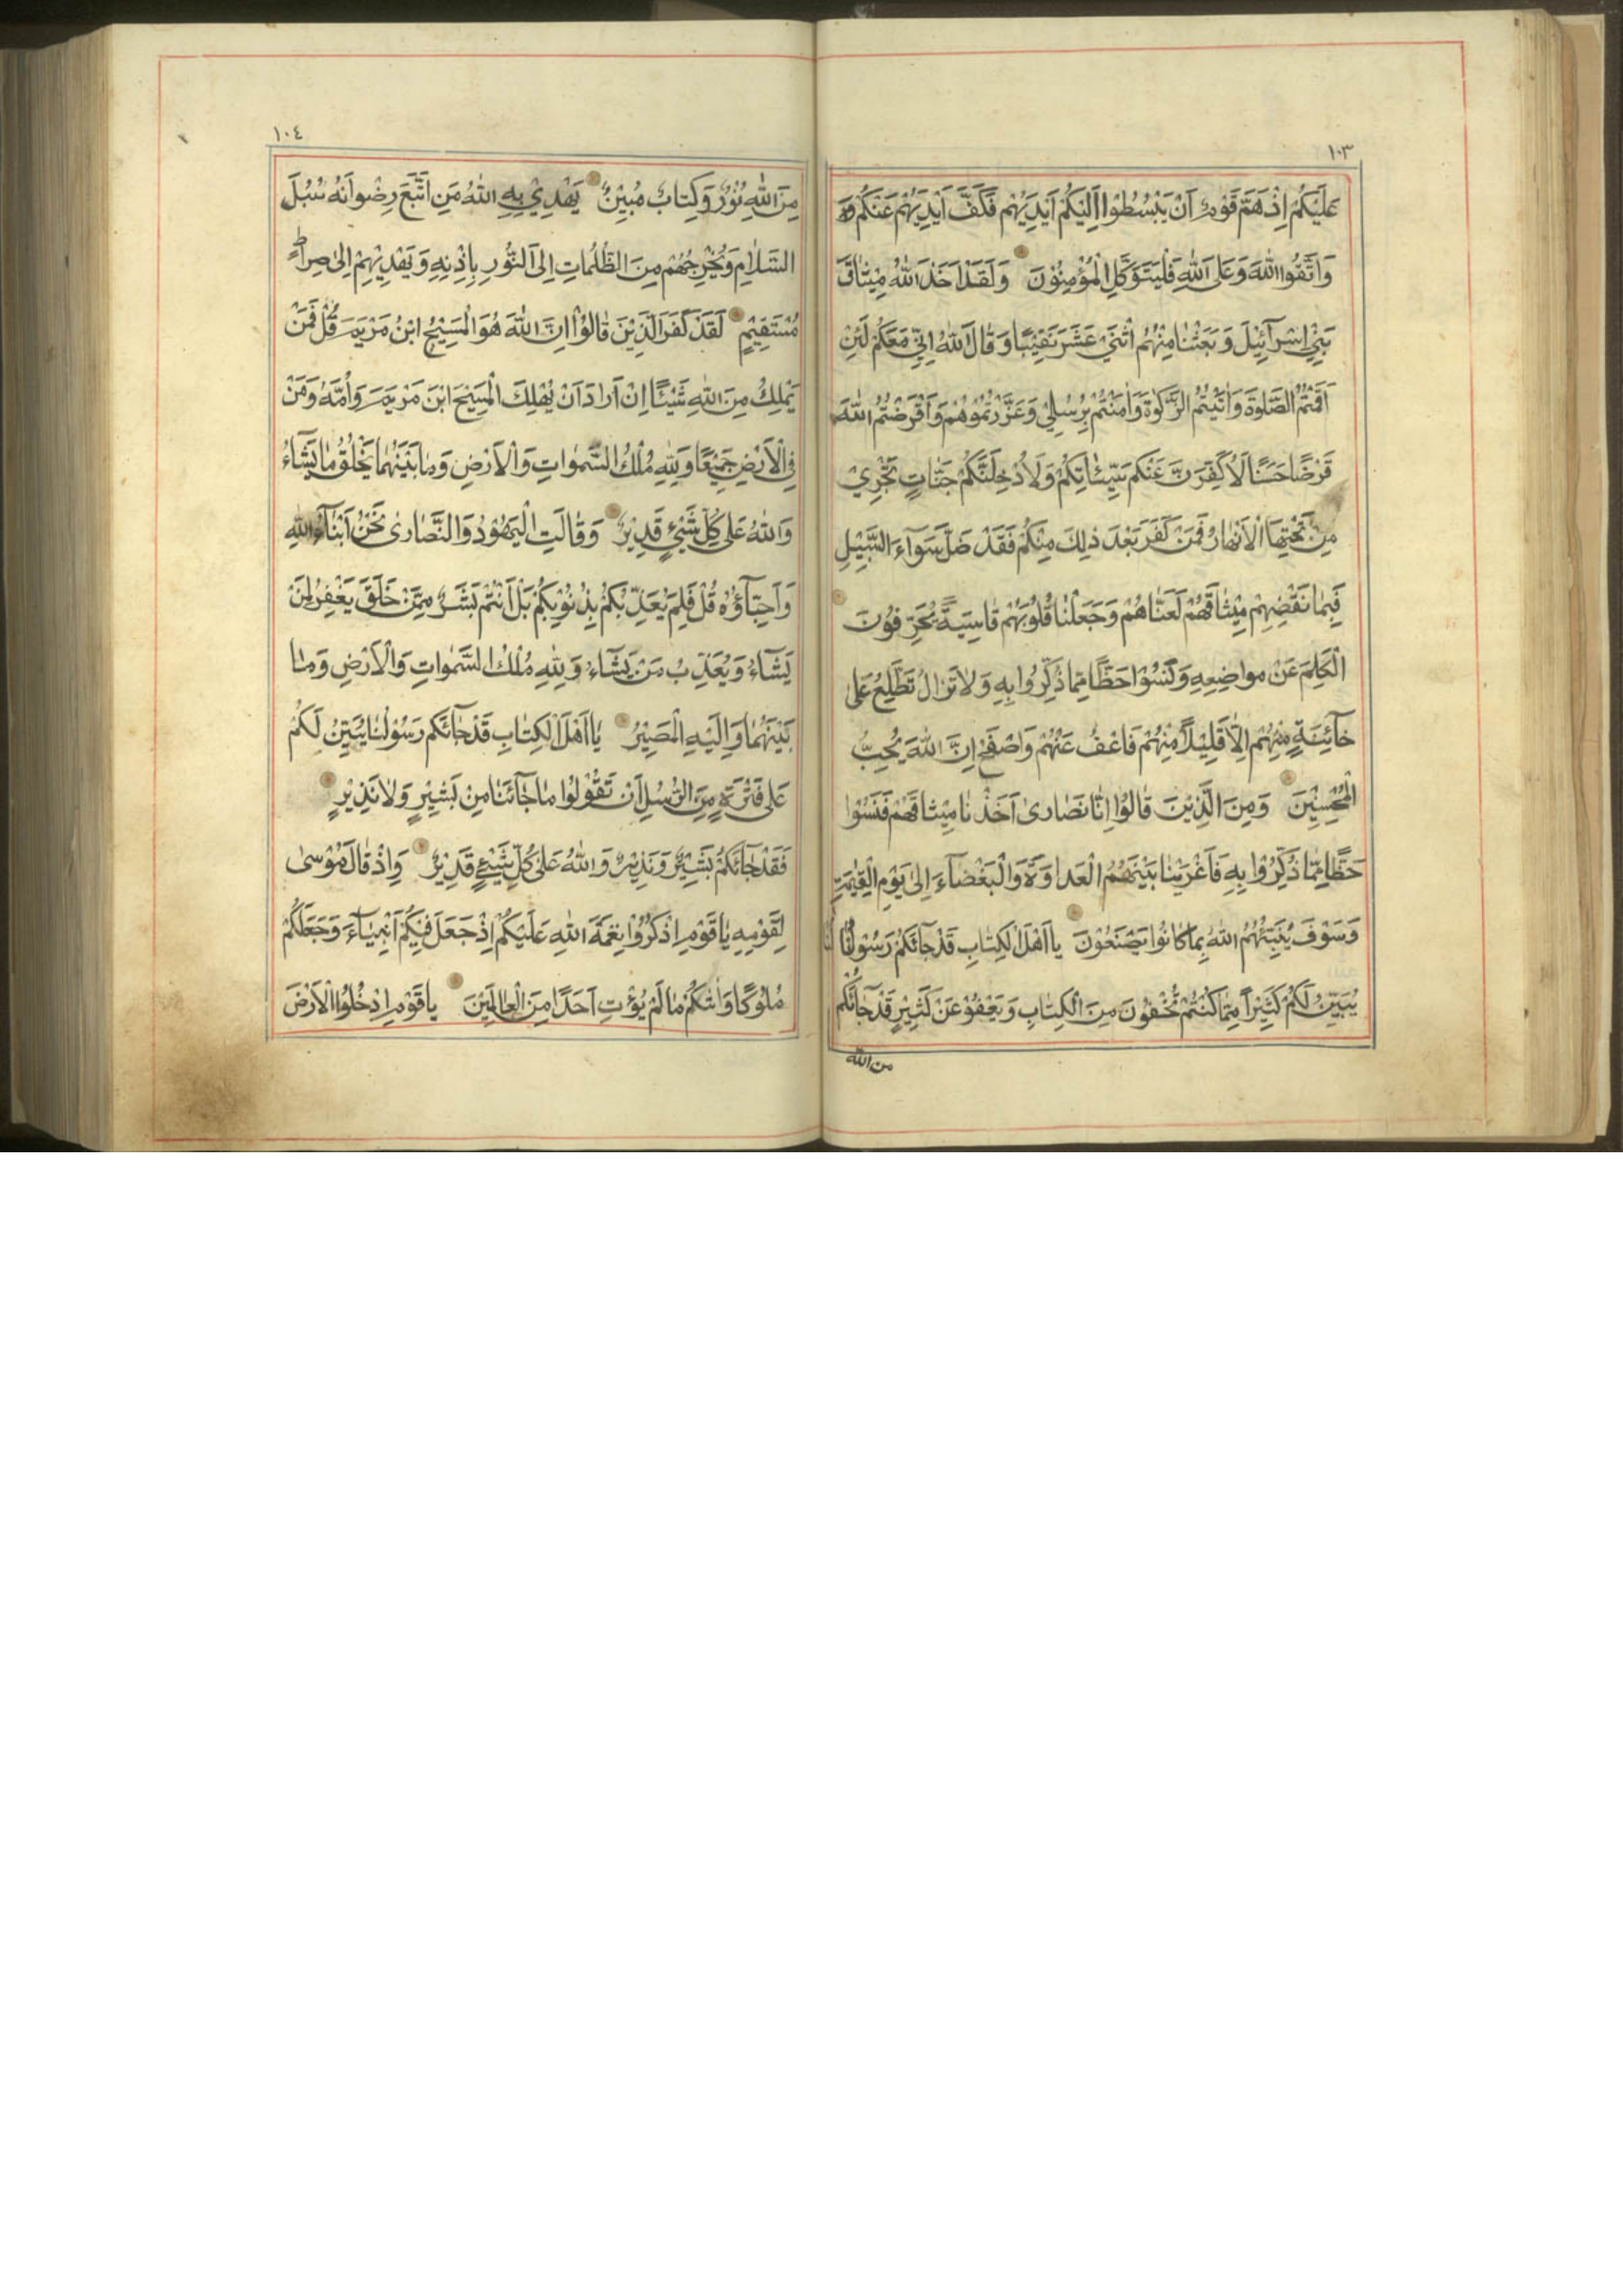 ١٠٣
عَلَيْكُمْ اِذْ هَمَّ قَوْمٌ اَنْ يَبْسُطُوْا اِلَيْكُمْ اَيْدِيَهُمْ فَكَفَّ اَيْدِيَهُمْ عَنْكُمْ
وَاتَّقُوا اللّٰهَ وَعَلَى اللّٰهِ فَلْيَتَوَكَّلِ الْمُؤْمِنُوْنَ وَلَقَدْ اَخَذَ اللّٰهُ مِيْثٰاقَ
بَنِيْ اِسْرٰٓائِيْلَ وَبَعَثْنٰا مِنْهُمُ اثْنَيْ عَشَرَ نَقِيْبًا وَقٰالَ اللّٰهُ اِنِّيْ مَعَكُمْ لَئِنْ
اَقَمْتُمُ الصَّلٰوةَ وَاٰتَيْتُمُ الزَّكٰوةَ وَاٰمَنْتُمْ بِرُسُلِيْ وَعَزَّرْتُمُوْهُمْ وَاَقْرَضْتُمُ اللّٰهَ
قَرْضًا حَسَنًا لَاُكَفِّرَنَّ عَنْكُمْ سَيِّئٰاتِكُمْ وَلَاُدْخِلَنَّكُمْ جَنّٰاتٍ تَجْرِيْ
مِنْ تَحْتِهَا الْاَنْهٰارُ فَمَنْ كَفَرَ بَعْدَ ذٰلِكَ مِنْكُمْ فَقَدْ ضَلَّ سَوٰٓاءَ السَّبِيْلِ
فَبِمٰا نَقْضِهِمْ مِيْثٰاقَهُمْ لَعَنّٰاهُمْ وَجَعَلْنٰا قُلُوْبَهُمْ قٰاسِيَةً يُحَرِّفُوْنَ
الْكَلِمَ عَنْ مَوٰاضِعِهِ وَنَسُوْا حَظًّا مِمّٰا ذُكِّرُوا بِهِ وَلٰا تَزٰالُ تَطَّلِعُ عَلٰى
خٰٓائِنَةٍ مِنْهُمْ اِلّٰا قَلِيْلًا مِنْهُمْ فَاعْفُ عَنْهُمْ وَاصْفَحْ اِنَّ اللّٰهَ يُحِبُّ
الْمُحْسِنِيْنَ وَمِنَ الَّذِيْنَ قٰالُوْا اِنّٰا نَصٰارىٰ اَخَذْنٰا مِيْثٰاقَهُمْ فَنَسُوْا
حَظًّا مِمّٰا ذُكِّرُوْا بِهِ فَاَغْرَيْنٰا بَيْنَهُمُ الْعَدٰاوَةَ وَالْبَغْضٰٓاءَ اِلىٰ يَوْمِ الْقِيٰمَةِ
وَسَوْفَ يُنَبِّئُهُمُ اللّٰهُ بِمٰا كٰانُوْا يَصْنَعُوْنَ يٰا اَهْلَ الْكِتٰابِ قَدْ جٰٓائَكُمْ رَسُوْلُنٰا
يُبَيِّنُ لَكُمْ كَثِيْرًا مِمّٰا كُنْتُمْ تُخْفُوْنَ مِنَ الْكِتٰابِ وَيَعْفُوْ عَنْ كَثِيْرٍ قَدْ جٰٓائَكُمْ
من الله
١٠٤
مِنَ اللّٰهِ نُوْرٌ وَكِتٰابٌ مُبِيْنٌ يَهْدِيْ بِهِ اللّٰهُ مَنِ اتَّبَعَ رِضْوٰانَهُ سُبُلَ
السَّلٰامِ وَيُخْرِجُهُمْ مِنَ الظُّلُمٰاتِ اِلَى النُّوْرِ بِاِذْنِهِ وَيَهْدِيْهِمْ اِلىٰ صِرٰاطٍ
مُسْتَقِيْمٍ لَقَدْ كَفَرَ الَّذِيْنَ قٰالُوْا اِنَّ اللّٰهَ هُوَ الْمَسِيْحُ ابْنُ مَرْيَمَ قُلْ فَمَنْ
يَمْلِكُ مِنَ اللّٰهِ شَيْئًا اِنْ اَرٰادَ اَنْ يُهْلِكَ الْمَسِيْحَ ابْنَ مَرْيَمَ وَاُمَّهُ وَمَنْ
فِي الْاَرْضِ جَمِيْعًا وَلِلّٰهِ مُلْكُ السَّمٰوٰاتِ وَالْاَرْضِ وَمٰا بَيْنَهُمٰا يَخْلُقُ مٰا يَشٰٓاءُ
وَاللّٰهُ عَلىٰ كُلِّ شَيْءٍ قَدِيْرٌ وَقٰالَتِ الْيَهُوْدُ وَالنَّصٰارىٰ نَحْنُ اَبْنٰٓاءُ اللّٰهِ
وَاَحِبّٰٓاؤُهُ قُلْ فَلِمَ يُعَذِّبُكُمْ بِذُنُوْبِكُمْ بَلْ اَنْتُمْ بَشَرٌ مِمَّنْ خَلَقَ يَغْفِرُ لِمَنْ
يَشٰٓاءُ وَيُعَذِّبُ مَنْ يَشٰٓاءُ وَلِلّٰهِ مُلْكُ السَّمٰوٰاتِ وَالْاَرْضِ وَمٰا
بَيْنَهُمٰا وَاِلَيْهِ الْمَصِيْرُ يٰا اَهْلَ الْكِتٰابِ قَدْ جٰٓائَكُمْ رَسُوْلُنٰا يُبَيِّنُ لَكُمْ
عَلىٰ فَتْرَةٍ مِنَ الرُّسُلِ اَنْ تَقُوْلُوْا مٰا جٰٓائَنٰا مِنْ بَشِيْرٍ وَلٰا نَذِيْرٍ
فَقَدْ جٰٓائَكُمْ بَشِيْرٌ وَنَذِيْرٌ وَاللّٰهُ عَلىٰ كُلِّ شَيْءٍ قَدِيْرٌ وَاِذْ قٰالَ مُوْسىٰ
لِقَوْمِهِ يٰا قَوْمِ اذْكُرُوْا نِعْمَةَ اللّٰهِ عَلَيْكُمْ اِذْ جَعَلَ فِيْكُمْ اَنْبِيٰٓاءَ وَجَعَلَكُمْ
مُلُوْكًا وَاٰتٰىكُمْ مٰا لَمْ يُؤْتِ اَحَدًا مِنَ الْعٰالَمِيْنَ يٰا قَوْمِ ادْخُلُوا الْاَرْضَ